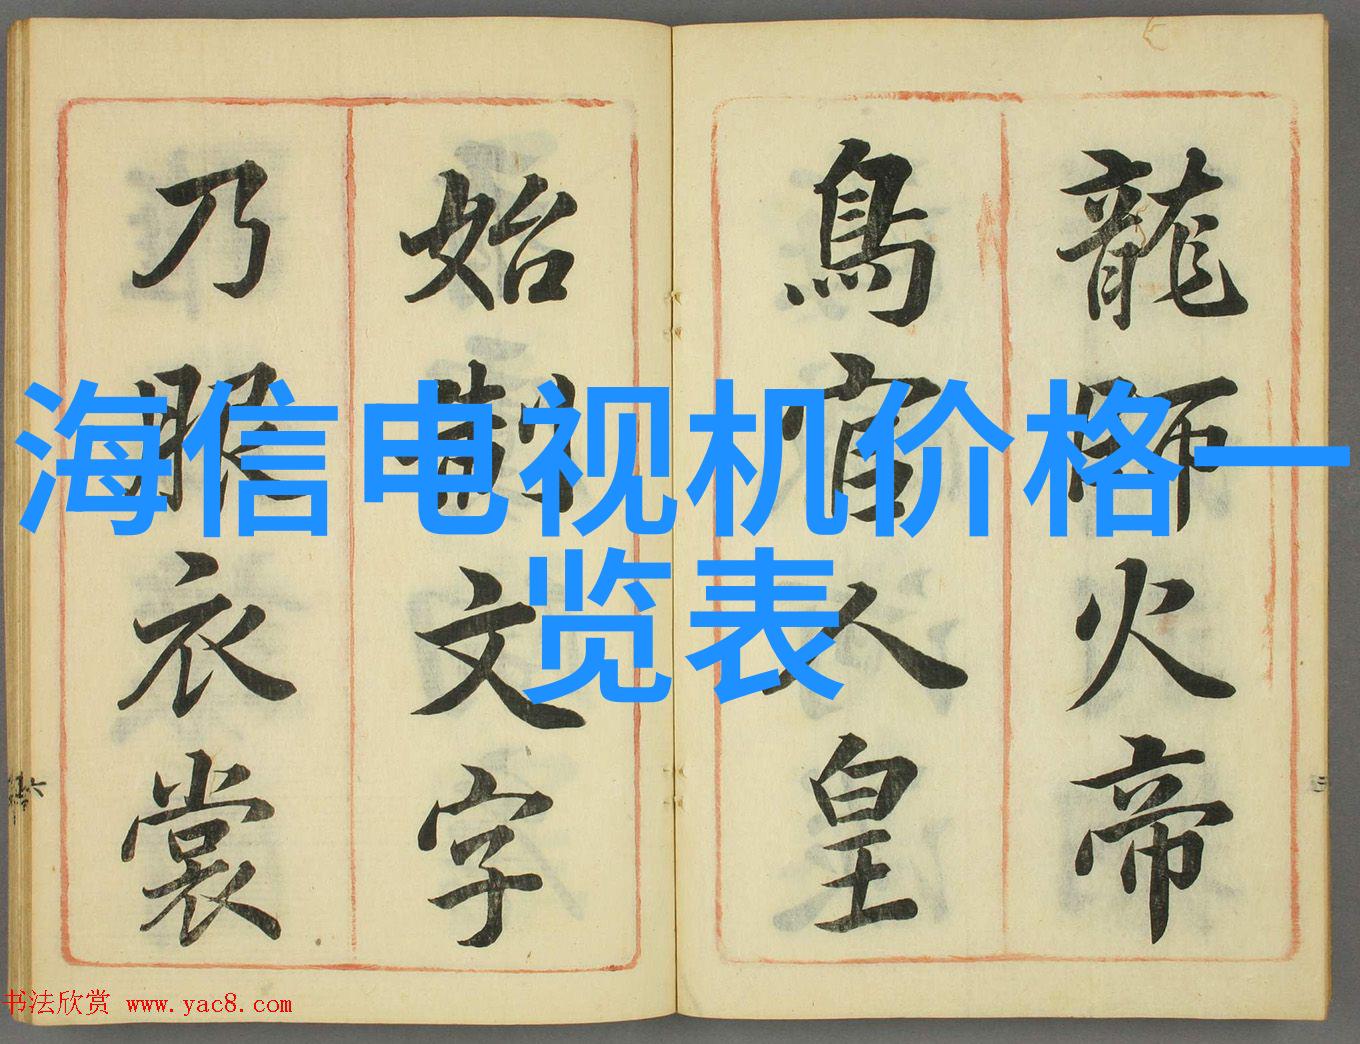 龍師火帝
鳥官人皇
始制文字
乃服衣裳
海信电视机价格一
览表
书法欣赏 www.yac8.com